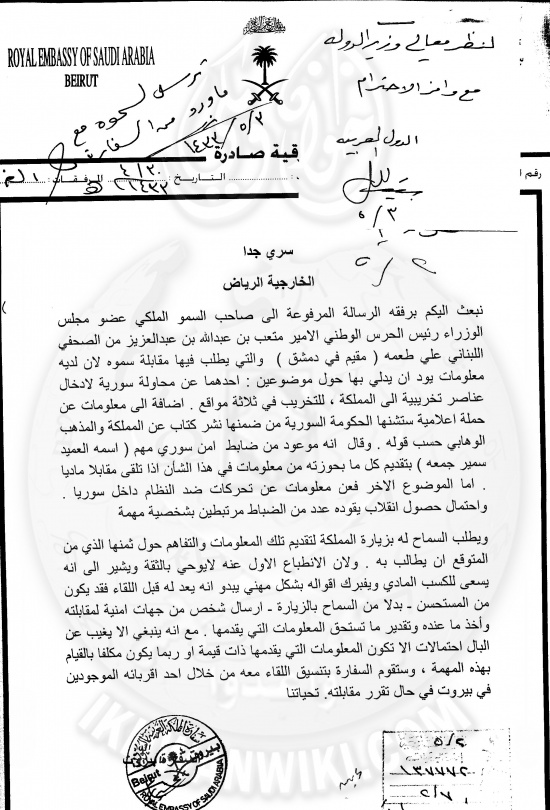 ROYAL EMBASSY OF SAUDI ARABIA
BEIRUT
لنظر معالي وزير الدولة
مع وافر الاحترام
الدول العربيه
٥/٣
١٤٣٣/٥/٣
برقية صادرة
رقم
التاريخ : ٤/٣٠
المرفقات :
٥/٢
سري جدا
الخارجية الرياض
نبعث اليكم برفقه الرسالة المرفوعة الى صاحب السمو الملكي عضو مجلس
الوزراء رئيس الحرس الوطني الامير متعب بن عبدالله بن عبدالعزيز من الصحفي
اللبناني علي طعمه ( مقيم في دمشق ) والتي يطلب فيها مقابلة سموه لان لديه
معلومات يود ان يدلي بها حول موضوعين : احدهما عن محاولة سورية لادخال
عناصر تخريبية الى المملكة ، للتخريب في ثلاثة مواقع . اضافة الى معلومات عن
حملة اعلامية ستشنها الحكومة السورية من ضمنها نشر كتاب عن المملكة والمذهب
الوهابي حسب قوله . وقال انه موعود من ضابط امن سوري مهم ( اسمه العميد
سمير جمعه ) بتقديم كل ما بحوزته من معلومات في هذا الشأن اذا تلقى مقابلا ماديا
. اما الموضوع الاخر فعن معلومات عن تحركات ضد النظام داخل سوريا .
واحتمال حصول انقلاب يقوده عدد من الضباط مرتبطين بشخصية مهمة
ويطلب السماح له بزيارة المملكة لتقديم تلك المعلومات والتفاهم حول ثمنها الذي من
المتوقع ان يطالب به . ولان الانطباع الاول عنه لايوحي بالثقة ويشير الى انه
يسعى للكسب المادي ويفبرك اقواله بشكل مهني يبدو انه يعد له قبل اللقاء فقد يكون
من المستحسن ـ بدلا من السماح بالزيارة ـ ارسال شخص من جهات امنية لمقابلته
وأخذ ما عنده وتقدير ما تستحق المعلومات التي يقدمها . مع انه ينبغي الا يغيب عن
البال احتمالات الا تكون المعلومات التي يقدمها ذات قيمة او ربما يكون مكلفا بالقيام
بهذه المهمة ، وستقوم السفارة بتنسيق اللقاء معه من خلال احد اقربائه الموجودين
في بيروت في حال تقرر مقابلته. تحياتنا
Beirut
ROYAL EMBASSY OF SAUDI ARABIA
٥/٢
١٣٧٧٧٢
٢/٧